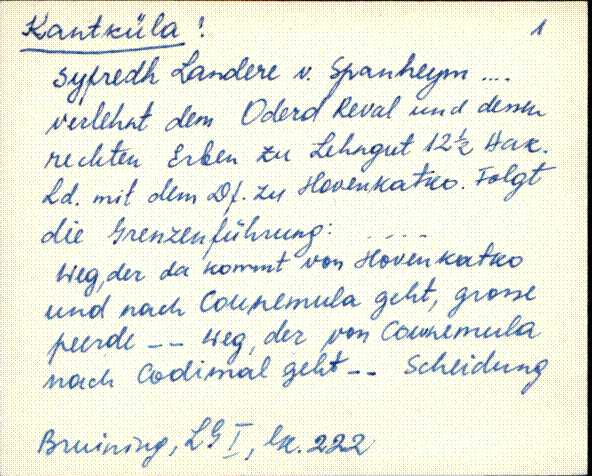 Kantküla! 1
Syfredh Landere v. Spanheym ....
verlehnt dem Oderd Reval und dessen
rechten Erben zu Lehngut 12½ Hak.
Ld. mit dem Df. zu Hovenkatko. Folgt
die Grenzenführung: ....
Weg, der da kommt von Hovenkatko
und nach Counemula geht, grosse
peerde -- Weg, der von Counemula
nach Codimal geht -- Scheidung
Bruining, LG I, lk. 222